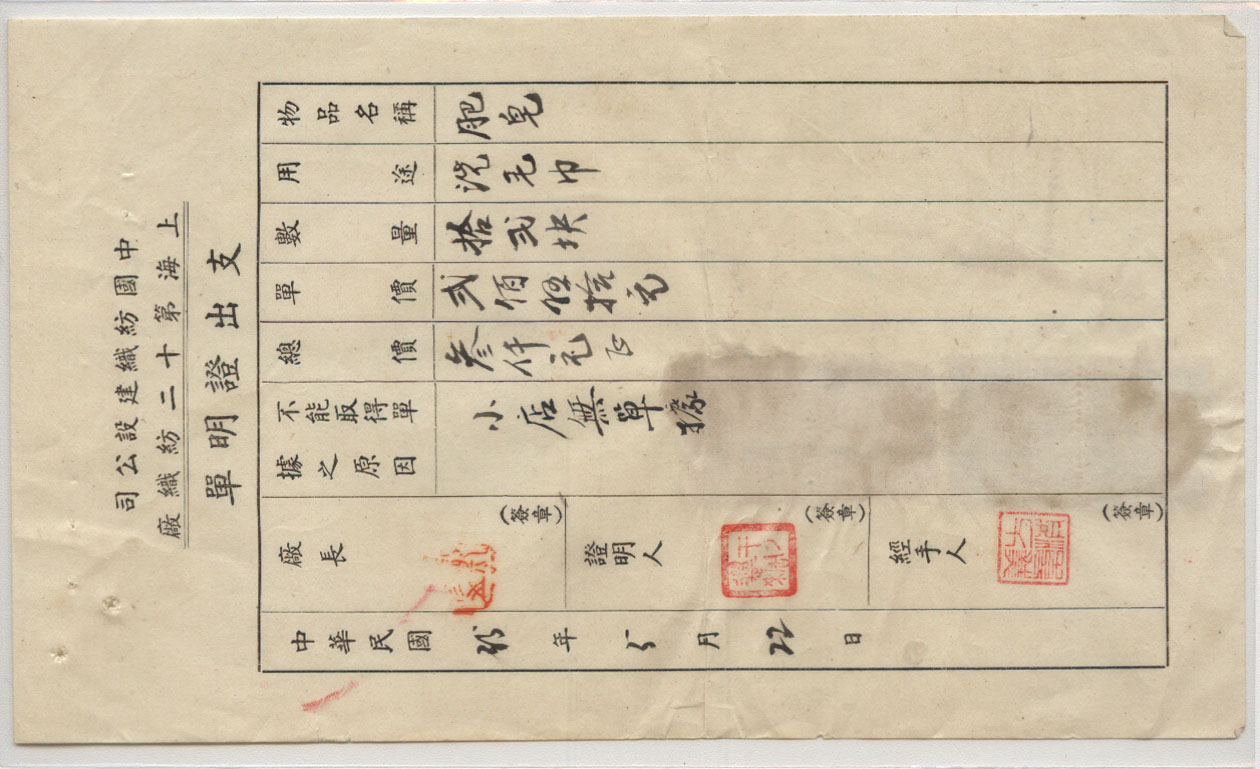 中國紡織建設公司
上海第十二紡織廠
支出證明單
物品名稱 肥皂
用途 洗毛巾
數量 拾弍块
單價 弍佰伍拾元
總價 叁仟元正
不能取得單據之原因 小店無單據
廠長 (簽章)
證明人 (簽章)
經手人 (簽章)
中華民國 35 年 5 月 22 日